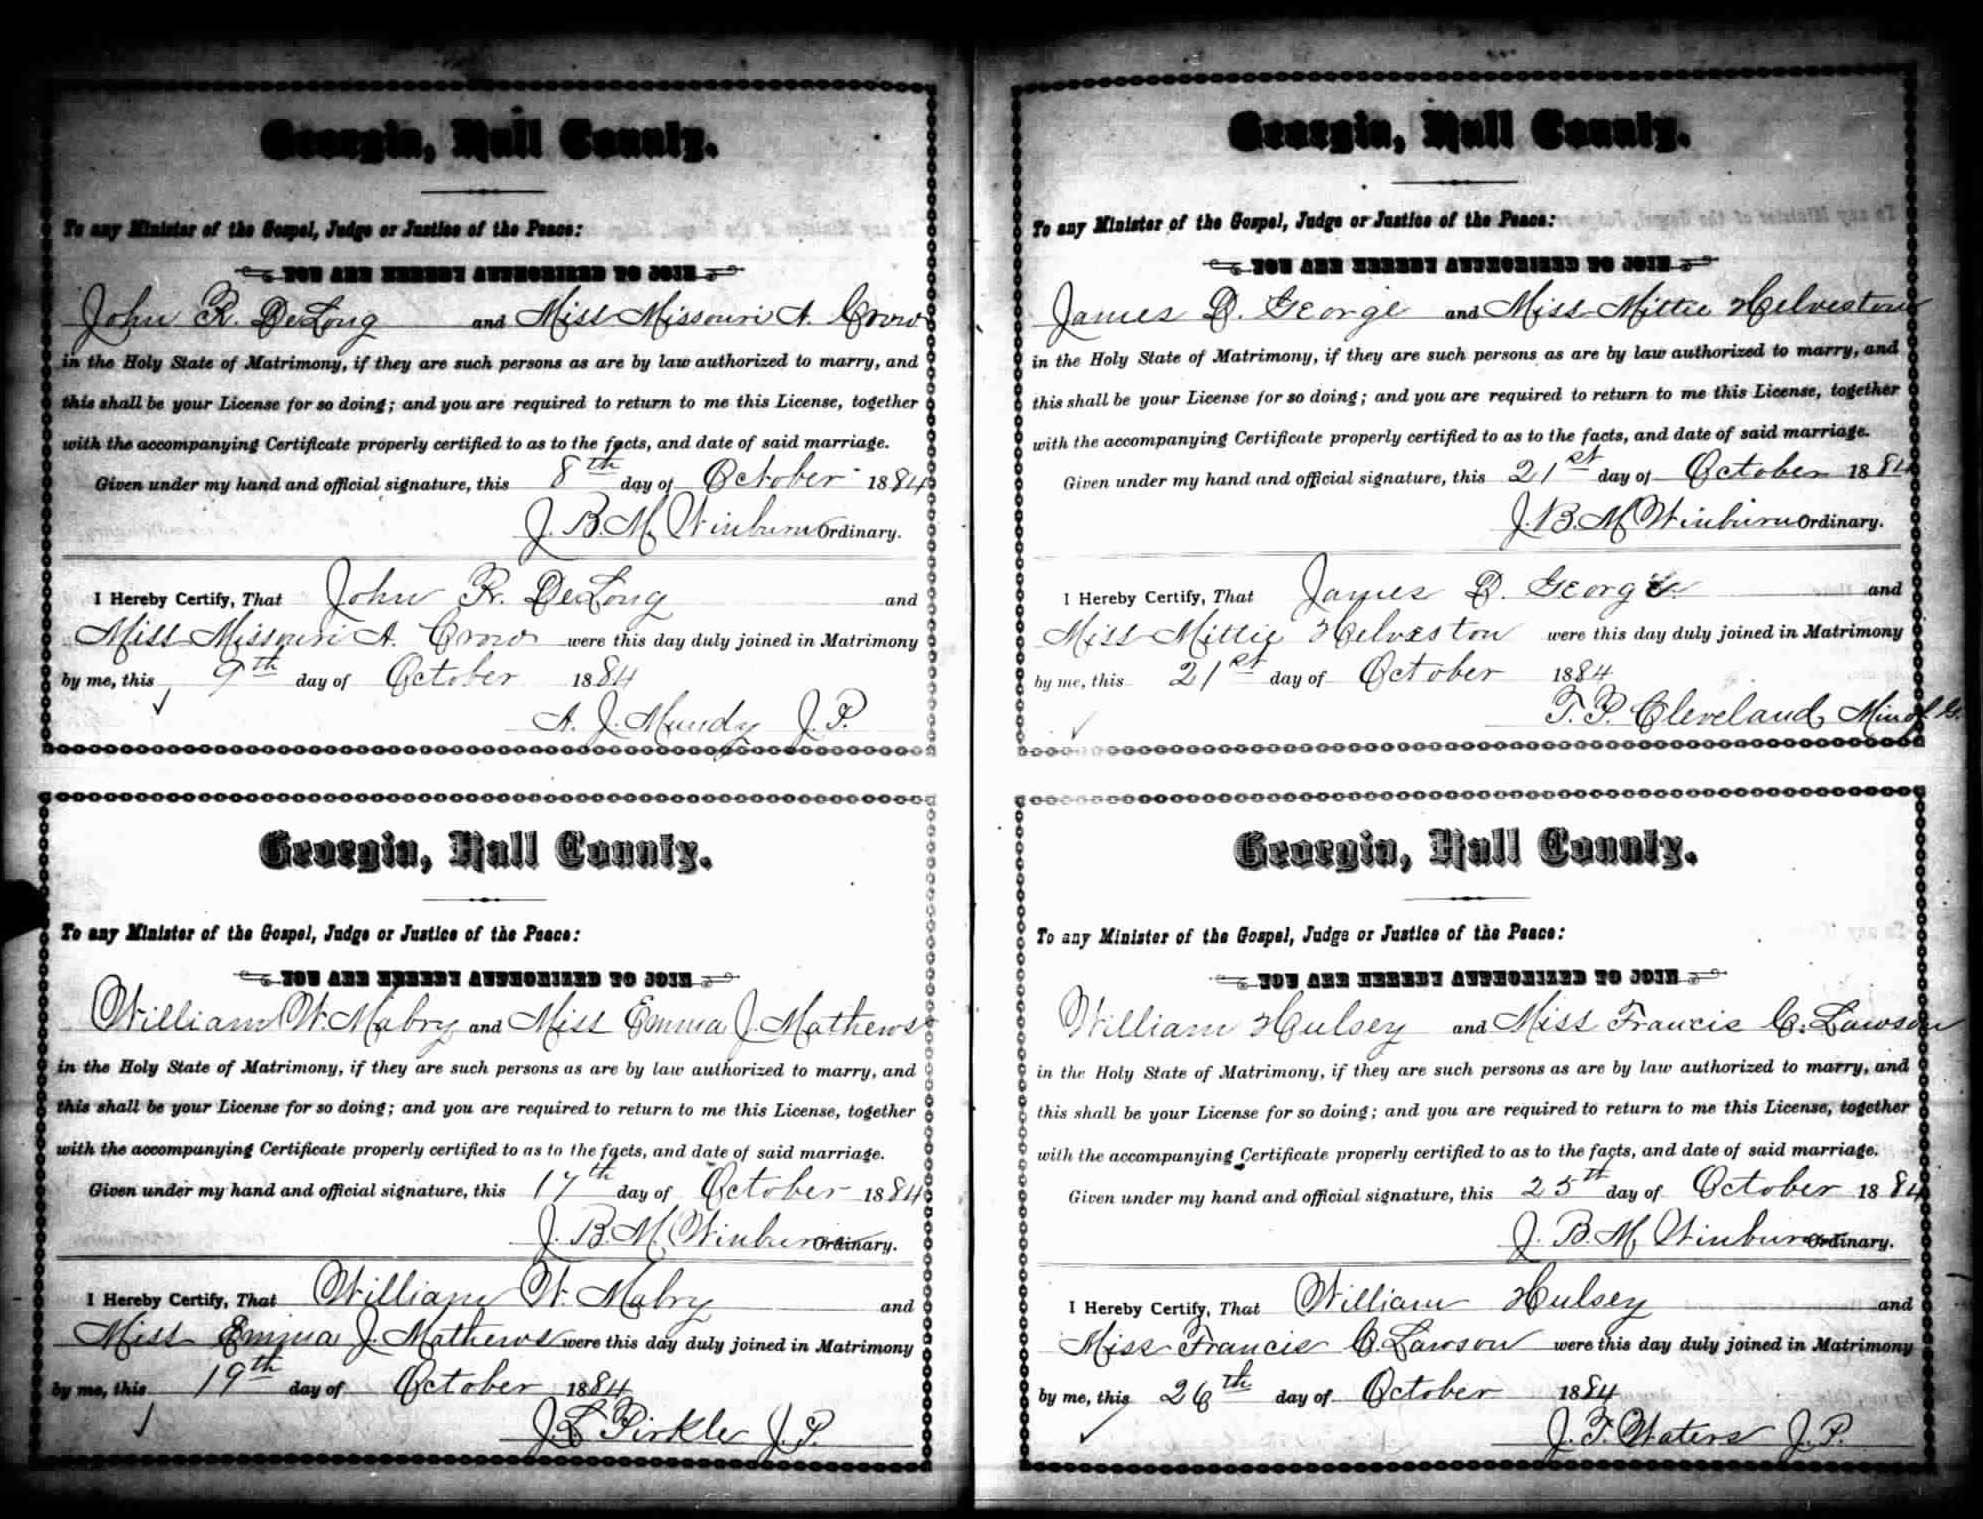 Georgia, Hall County.
To any Minister of the Gospel, Judge or Justice of the Peace:
YOU ARE HEREBY AUTHORIZED TO JOIN
John R. DeLong and Miss Missouri A. Crow
in the Holy State of Matrimony, if they are such persons as are by law authorized to marry, and
this shall be your License for so doing; and you are required to return to me this License, together
with the accompanying Certificate properly certified to as to the facts, and date of said marriage.
Given under my hand and official signature, this 8th day of October 1884
J. B. M. Winburn Ordinary.
I Hereby Certify, That John R. DeLong and
Miss Missouri A. Crow were this day duly joined in Matrimony
by me, this 9th day of October 1884
A. J. Mundy J. P.
Georgia, Hall County.
To any Minister of the Gospel, Judge or Justice of the Peace:
YOU ARE HEREBY AUTHORIZED TO JOIN
William W. Mabry and Miss Emma J. Mathews
in the Holy State of Matrimony, if they are such persons as are by law authorized to marry, and
this shall be your License for so doing; and you are required to return to me this License, together
with the accompanying Certificate properly certified to as to the facts, and date of said marriage.
Given under my hand and official signature, this 17th day of October 1884
J. B. M. Winburn Ordinary.
I Hereby Certify, That William W. Mabry and
Miss Emma J. Mathews were this day duly joined in Matrimony
by me, this 19th day of October 1884
J. L. Pirkle J. P.
Georgia, Hall County.
To any Minister of the Gospel, Judge or Justice of the Peace:
YOU ARE HEREBY AUTHORIZED TO JOIN
James D. George and Miss Mittie Helveston
in the Holy State of Matrimony, if they are such persons as are by law authorized to marry, and
this shall be your License for so doing; and you are required to return to me this License, together
with the accompanying Certificate properly certified to as to the facts, and date of said marriage.
Given under my hand and official signature, this 21st day of October 1884
J. B. M. Winburn Ordinary.
I Hereby Certify, That James D. George and
Miss Mittie Helveston were this day duly joined in Matrimony
by me, this 21st day of October 1884
T. P. Cleveland, Min of G.
Georgia, Hall County.
To any Minister of the Gospel, Judge or Justice of the Peace:
YOU ARE HEREBY AUTHORIZED TO JOIN
William Hulsey and Miss Francis C. Lawson
in the Holy State of Matrimony, if they are such persons as are by law authorized to marry, and
this shall be your License for so doing; and you are required to return to me this License, together
with the accompanying Certificate properly certified to as to the facts, and date of said marriage.
Given under my hand and official signature, this 25th day of October 1884
J. B. M. Winburn Ordinary.
I Hereby Certify, That William Hulsey and
Miss Francis C. Lawson were this day duly joined in Matrimony
by me, this 26th day of October 1884
J. F. Waters J. P.